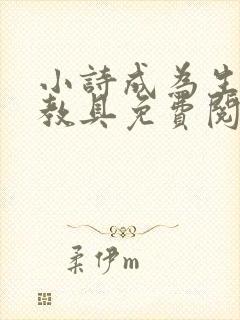 小詩成為生
教具免費閱
柔伊m